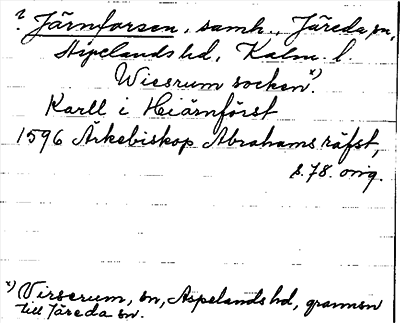 ? Järnforsen, samh., Järeda sn,
Aspelands hd, Kalm. l.
Wiesrum socken x).
Karll i Hiärnförst
1596 Ärkebiskop Abrahams räfst,
s. 78. orig.
x) Virserum, sn, Aspelands hd, grannsn
till Järeda sn.